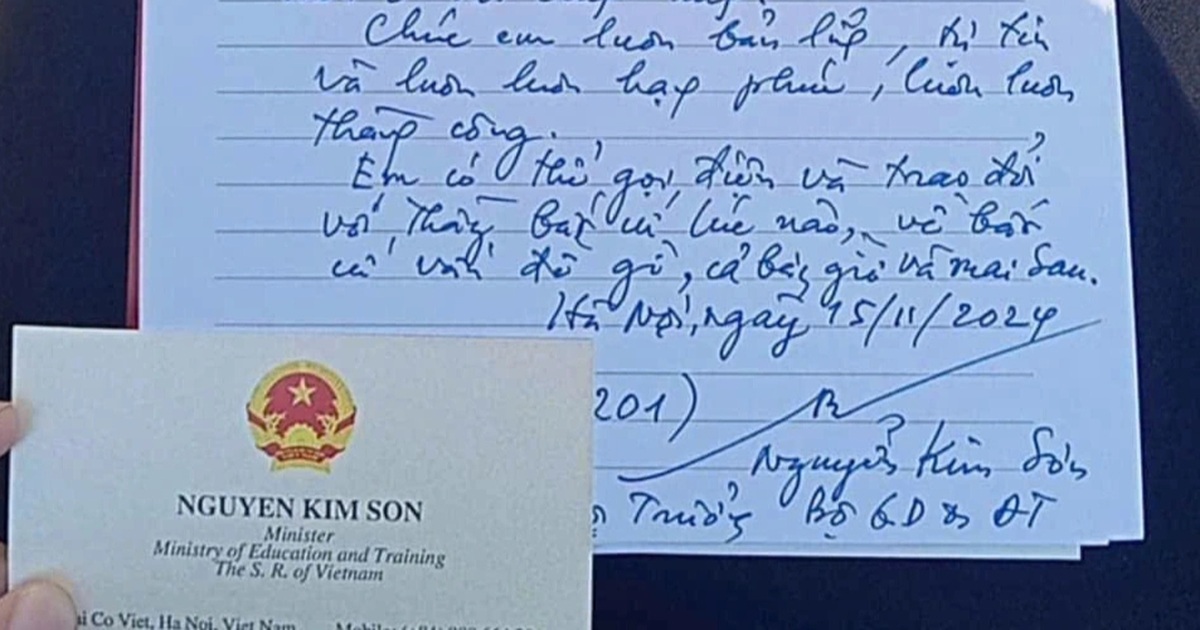 Chúc em luôn bản lĩnh, tự tin
và luôn luôn hạnh phúc, luôn luôn
thành công.
Em có thể gọi điện và trao đổi
với Thầy bất cứ lúc nào, về bất
cứ vấn đề gì, cả bây giờ và mai sau.
Hà Nội, ngày 15/11/2024
201)
Nguyễn Kim Sơn
Trưởng Bộ GD & ĐT
NGUYEN KIM SON
Minister
Ministry of Education and Training
The S. R. of Vietnam
Co Viet, Ha Noi, Viet Nam